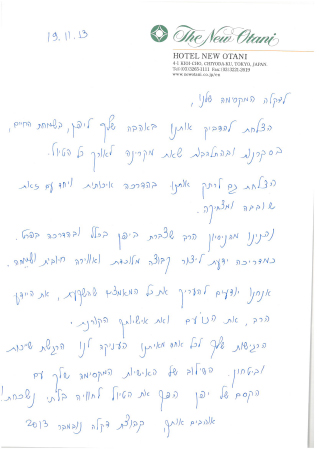 19.11.13
The New Otani
HOTEL NEW OTANI
4-1 KIOI-CHO, CHIYODA-KU, TOKYO, JAPAN
Tel: (03)3265-1111 Fax: (03)3221-2619
www.newotani.co.jp/en
לדקלה המקסימה שלנו,
הצלחת להדביק אותנו באהבה שלך ליפן, בשמחת החיים,
בסקרנות ובהתלהבות שאת מקרינה לאורך כל הטיול.
הצלחת גם לרתק אותנו בהדרכה איכותית ויחד עם זאת
שובבה ומצחיקה.
נהנינו מהניסיון הרב שצברת ביפן בכלל ובהדרכה בפרט.
כמדריכה ידעת ליצור קבוצה מלוכדת ואווירה חיובית
אנחנו יודעים להעריך את כל המאמצים שהשקעת, את הידע
הרב, את הנועם ואת אישיותך הקורנת.
הרגישות שלך לכל אחד מאיתנו העניקה לנו הרגשת שייכות
וביטחון. השילוב של האישיות המקסימה שלך עם
הקסם של יפן הפך את הטיול לחוויה בלתי נשכחת!
אוהבים אותך, קבוצת דקלה נובמבר 2013